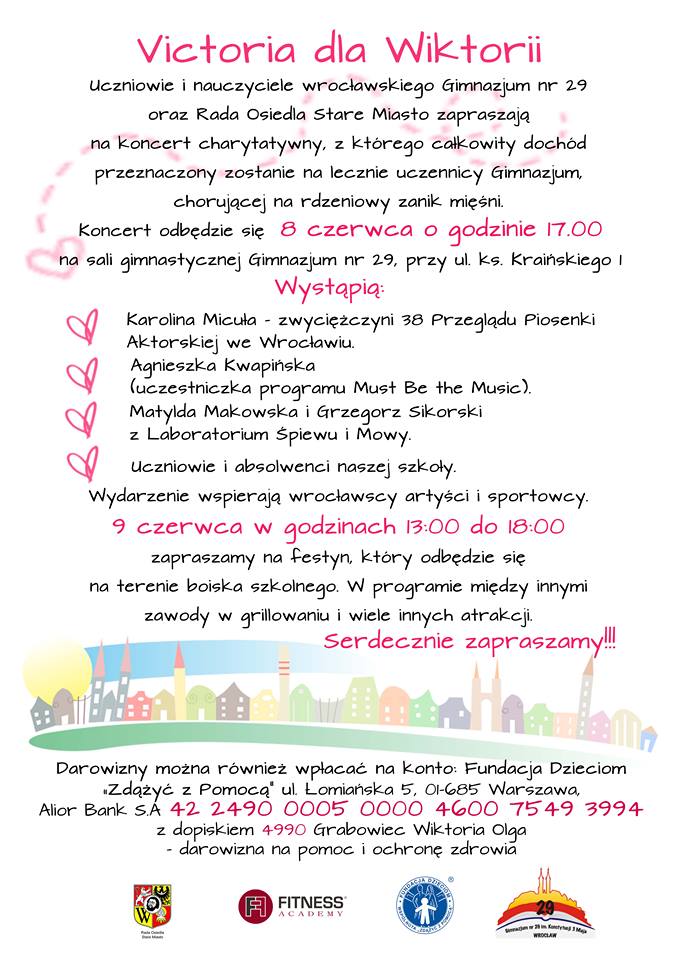 Victoria dla Wiktorii
Uczniowie i nauczyciele wrocławskiego Gimnazjum nr 29
oraz Rada Osiedla Stare Miasto zapraszają
na koncert charytatywny, z którego całkowity dochód
przeznaczony zostanie na lecznie uczennicy Gimnazjum,
chorującej na rdzeniowy zanik mięśni.
Koncert odbędzie się 8 czerwca o godzinie 17.00
na sali gimnastycznej Gimnazjum nr 29, przy ul. ks. Kraińskiego 1
Wystąpią:
Karolina Micuła - zwyciężczyni 38 Przeglądu Piosenki
Aktorskiej we Wrocławiu.
Agnieszka Kwapińska
(uczestniczka programu Must Be the Music).
Matylda Makowska i Grzegorz Sikorski
z Laboratorium Śpiewu i Mowy.
Uczniowie i absolwenci naszej szkoły.
Wydarzenie wspierają wrocławscy artyści i sportowcy.
9 czerwca w godzinach 13:00 do 18:00
zapraszamy na festyn, który odbędzie się
na terenie boiska szkolnego. W programie między innymi
zawody w grillowaniu i wiele innych atrakcji.
Serdecznie zapraszamy!!!
Darowizny można również wpłacać na konto: Fundacja Dzieciom
„Zdążyć z Pomocą" ul. Łomiańska 5, 01-685 Warszawa,
Alior Bank S.A 42 2490 0005 0000 4600 7549 3994
z dopiskiem 4990 Grabowiec Wiktoria Olga
- darowizna na pomoc i ochronę zdrowia
W
Rada Osiedla
Stare Miasto
FITNESS
ACADEMY
FUNDACJA DZIECIOM
"ZDĄŻYĆ Z POMOCĄ"
®
29
Gimnazjum nr 29 im. Konstytucji 3 Maja
WROCŁAW